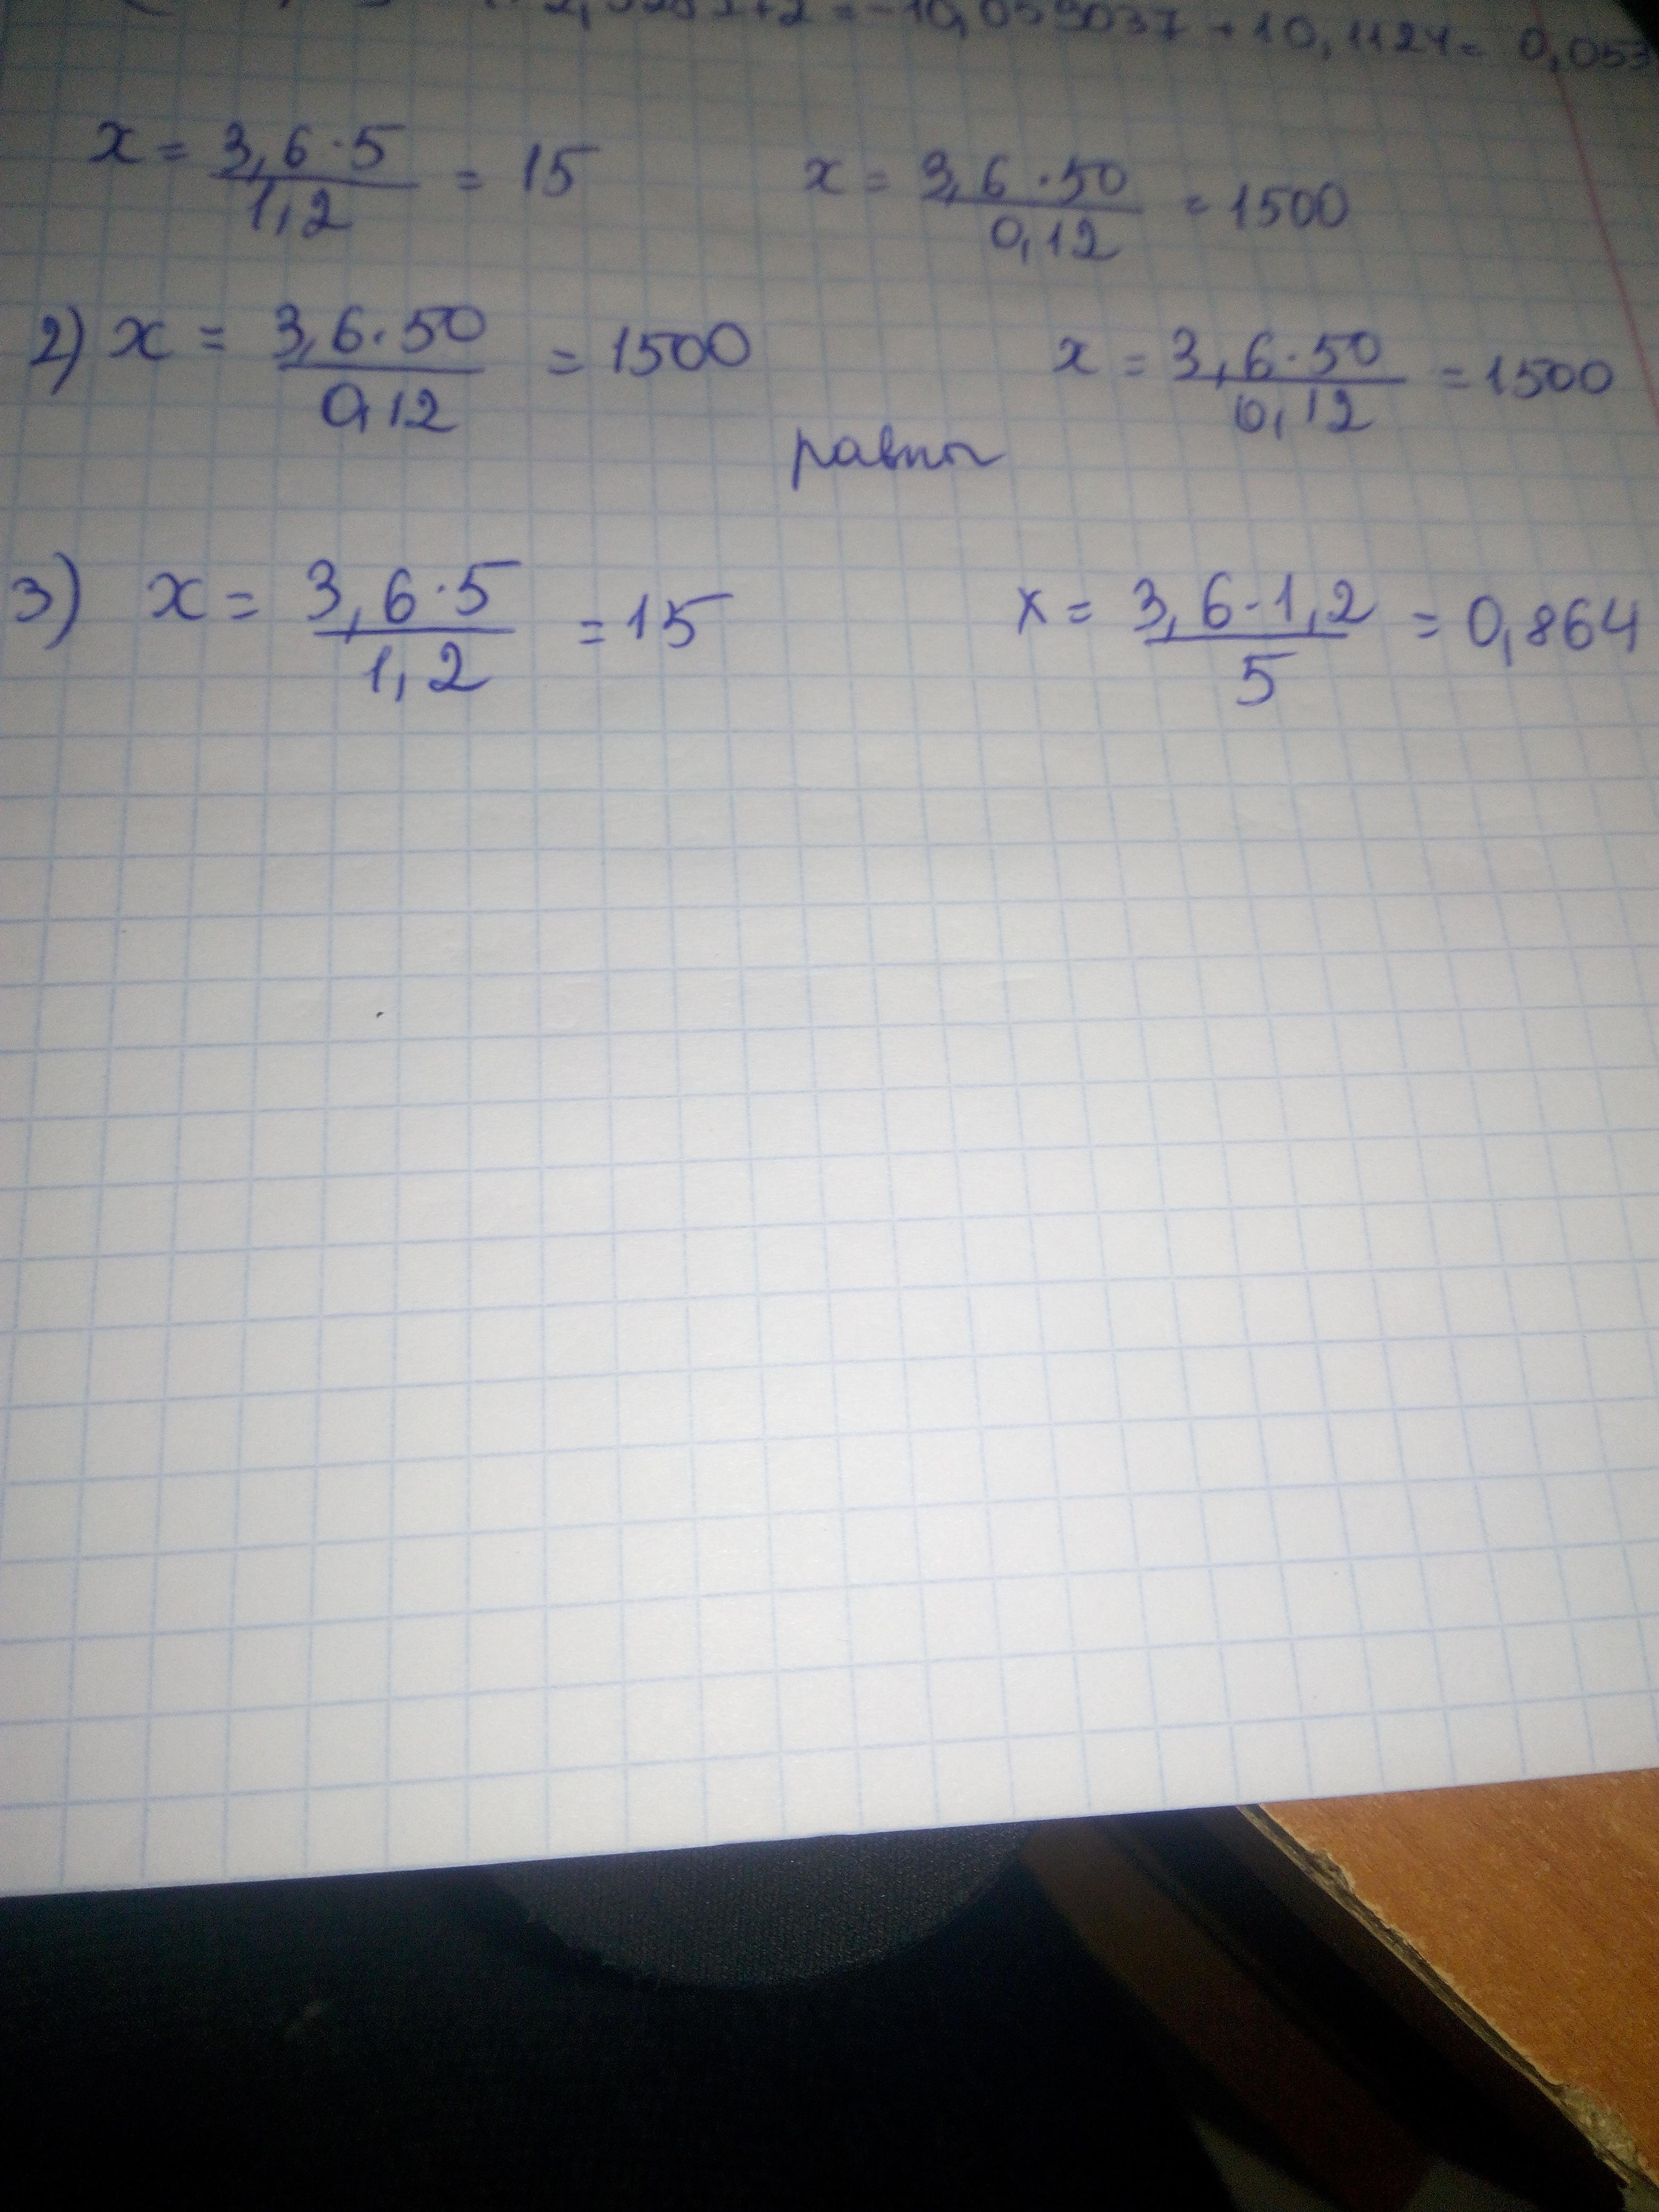 +2 = -10,059037 + 10,1124 = 0,053
x = 3,6·5 / 1,2 = 15 x = 3,6·50 / 0,12 = 1500
2) x = 3,6·50 / 0,12 = 1500 x = 3,6·50 / 0,12 = 1500
равны
3) x = 3,6·5 / 1,2 = 15 x = 3,6·1,2 / 5 = 0,864